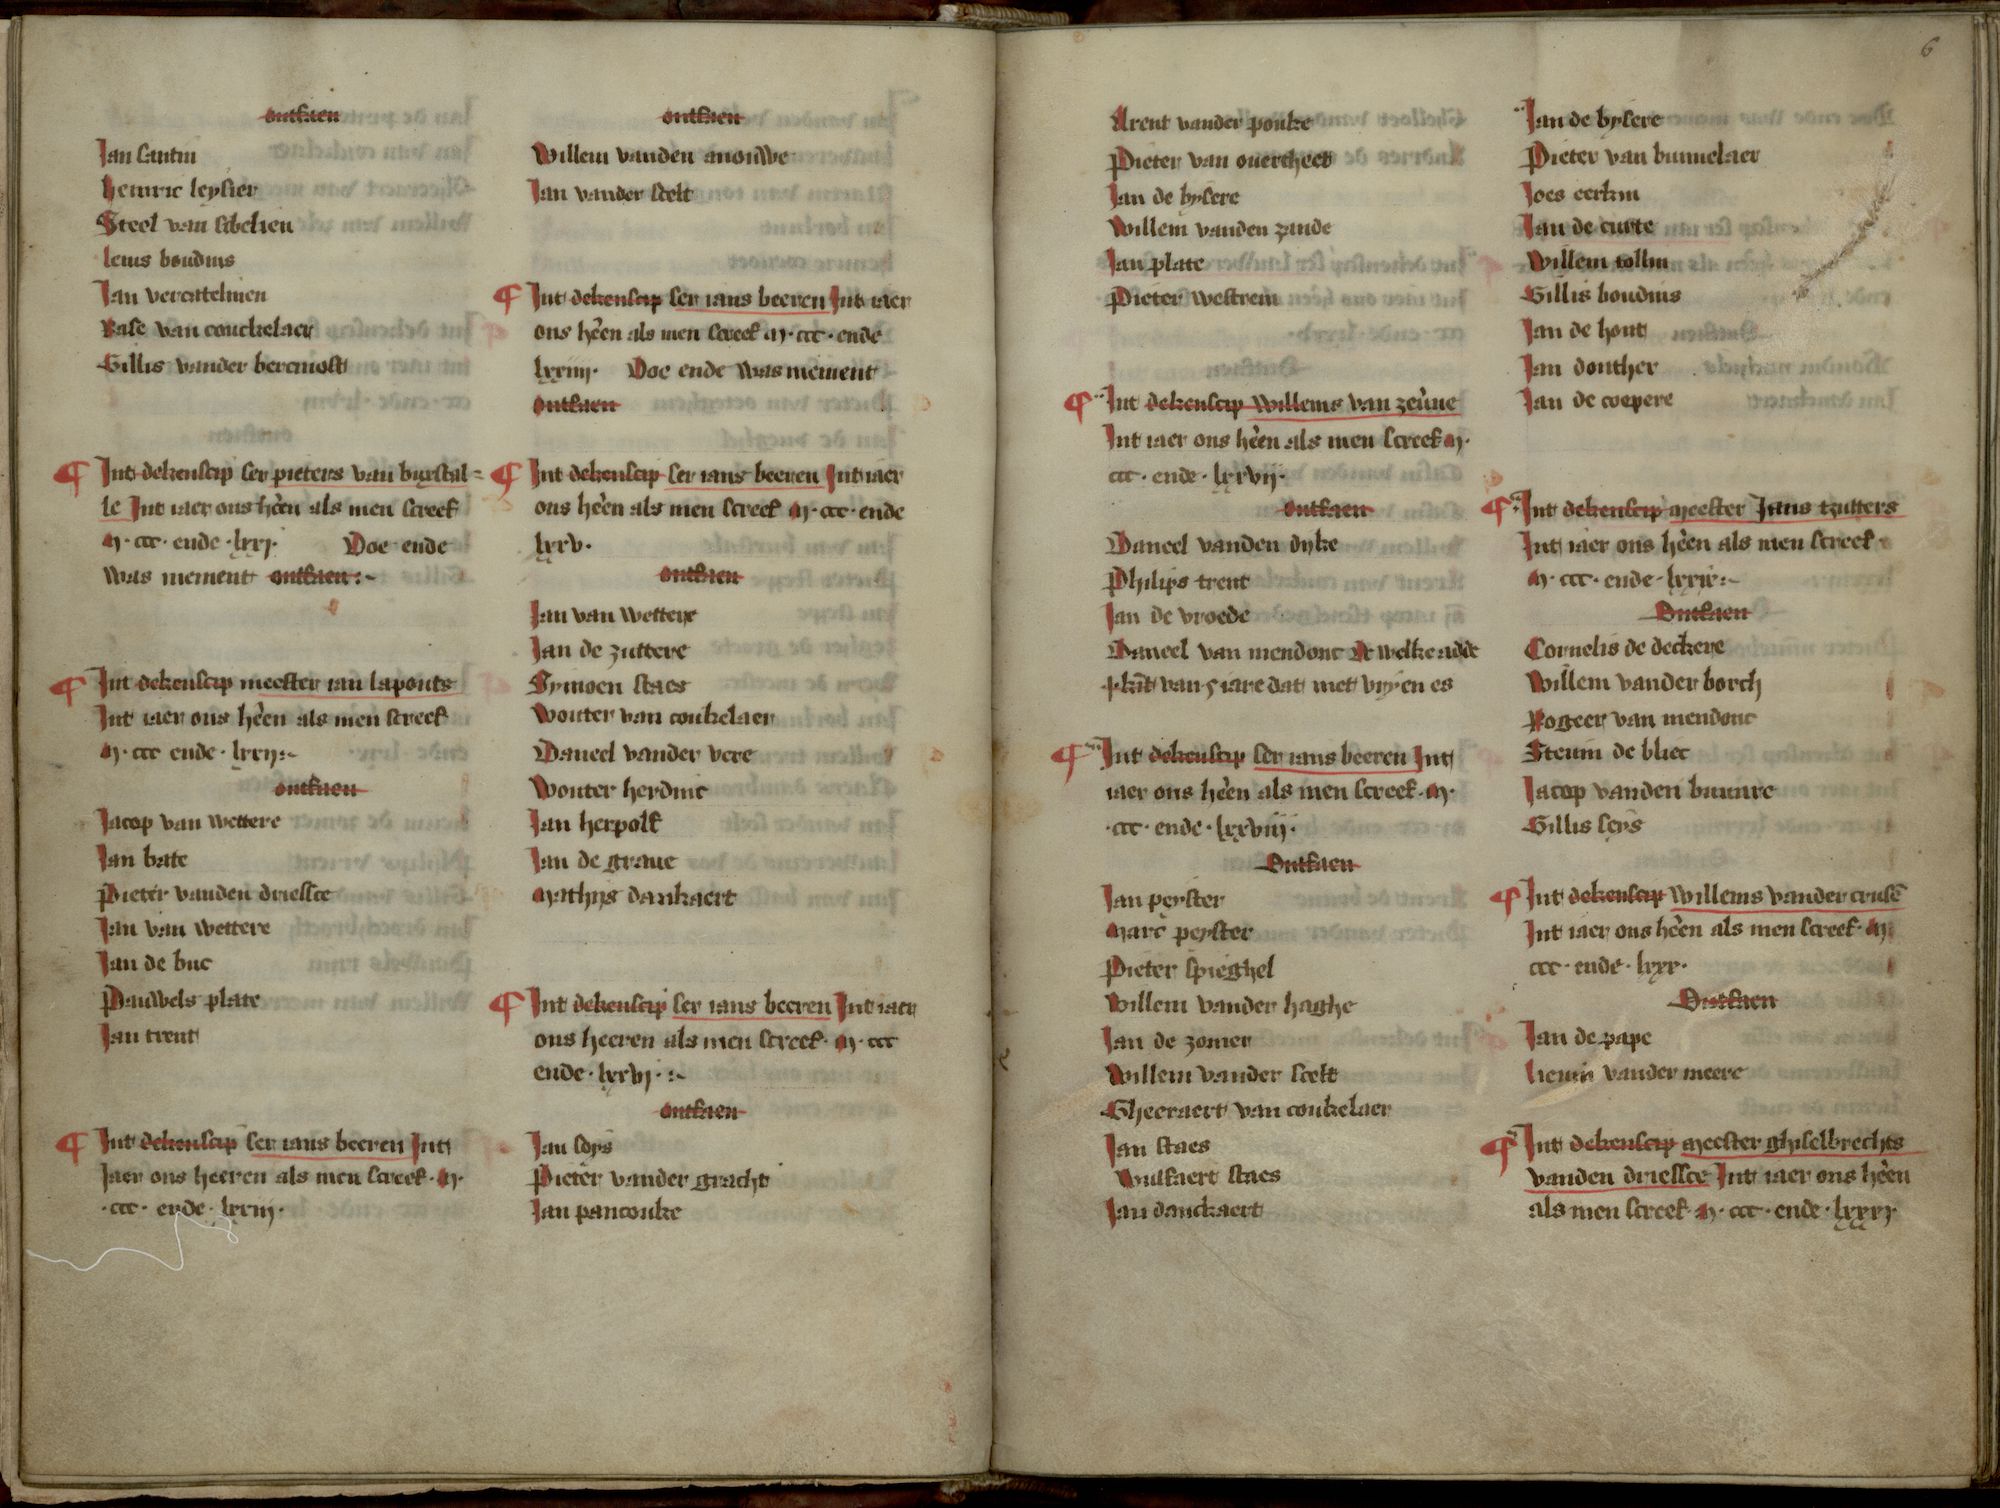 ontfaen
Jan santin
Heinric leysier
Steel van sibelien
leuis boudins
Jan vercatelinen
Rase van couckelaer
Gillis vander bercmost
¶ Int dekenscip ser pieters van burstal=
le Int iaer ons heen als men screef
M · ccc · ende · lxxj · Doe ende
was niement ontfaen :~
¶ Int dekenscip meester ian laponts
Int iaer ons heen als men screef
M · ccc ende · lxxij :~
ontfaen
Jacop van wettere
Jan bate
Pieter vanden driessce
Jan van wettere
Jan de buc
Pauwels plate
Jan trent
¶ Int dekenscip ser ians beeren Int
Jaer ons heeren als men screef · M ·
· ccc · ende · lxxiij ·
ontfaen
Willem vanden anouwe
Jan vander scelt
¶ Int dekenscip ser ians beeren Int iaer
ons heen als men screef M · ccc · ende
lxxiiij · Doe ende was niement
ontfaen
¶ Int dekenscip ser ians beeren Int iaer
ons heen als men screef M · ccc · ende
lxxv ·
ontfaen
Jan van wettere
Jan de zuttere
Symoen staes
Wouter van coukelaer
Daneel vander vere
Wouter herdinc
Jan herpolf
Jan de graue
Mathijs dankaert
¶ Int dekenscip ser ians beeren Int iaer
ons heeren als men screef · M · ccc
ende · lxxvj · :~
ontfaen
Jan soys
Pieter vander gracht
Jan pancouke
6
Arent vander ponke
Pieter van ouertheet
Jan de bysere
Willem vanden zande
Jan plate
Pieter westrem
¶ Int dekenscip Willems van zeune
Int iaer ons heen als men screef M ·
ccc · ende · lxxvij ·
ontfaen
Daneel vanden dyke
Philips trent
Jan de vroede
Daneel van mendonc De welke adde
kint van iare dat met vryen es
¶ Int dekenscip ser ians beeren Int
iaer ons heen als men screef · M ·
· ccc · ende · lxxviij ·
Ontfaen
Jan peyster
Marc peyster
Pieter spieghel
Willem vander haghe
Jan de zomer
Willem vander scelt
Gheeraert van coukelaer
Jan staes
Wulfaert staes
Jan danckaert
Jan de bysere
Pieter van bunnelaer
Joes eerkin
Jan de curte
Willem tollin
Gillis boudins
Jan de hont
Jan donther
Jan de coepere
¶ Int dekenscip Meester Jans tzutters
Int iaer ons heen als men screef ·
M · ccc · ende · lxxix :~
Ontfaen
Cornelis de deckere
Willem vander borch
Rogeer van mendonc
Steuin de bliec
Jacop vanden buunre
Gillis leys
¶ Int dekenscip Willems vander cruse
Int iaer ons heen als men screef · M ·
ccc · ende · lxxx ·
Ontfaen
Jan de pape
lieuin vander meere
¶ Int dekenscip Meester ghiselbrechts
vanden driessce Int iaer ons heen
als men screef M · ccc · ende · lxxxj ·